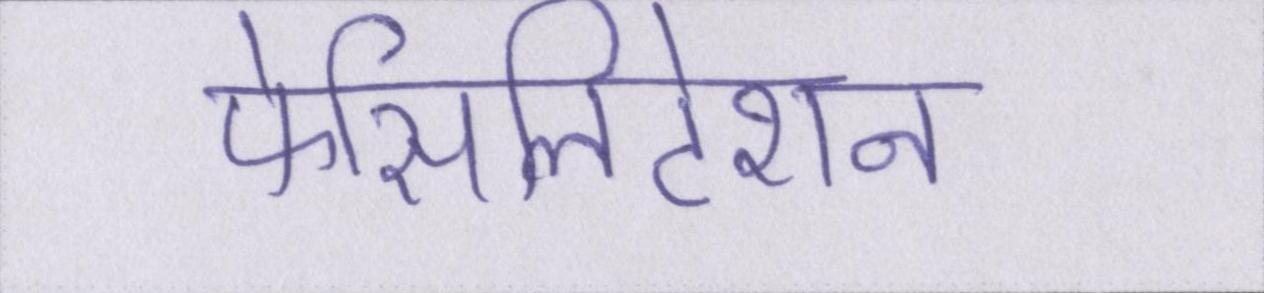 फेसिलिटेशन